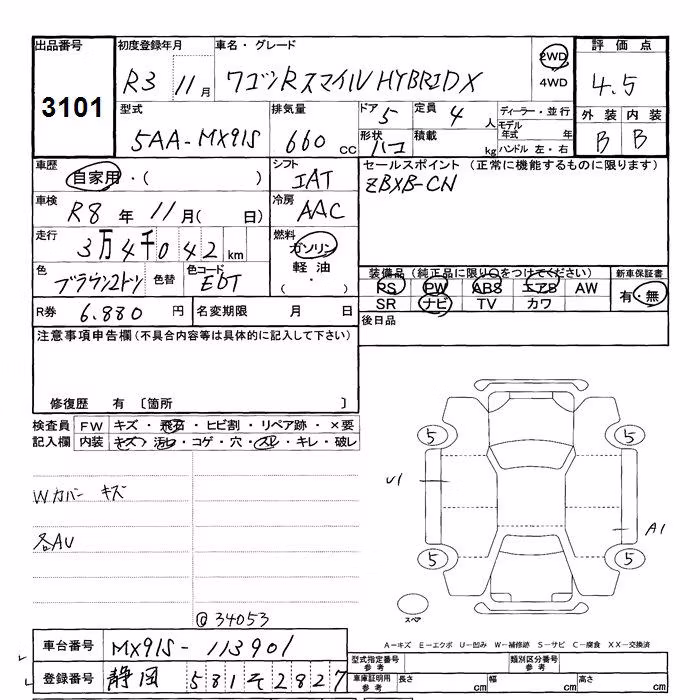 出品番号
3101
初度登録年月
R3 11月
車名・グレード
ワゴンRスマイル HYBRID X
2WD
4WD
評価点
4.5
型式
5AA-MX91S
排気量
660 cc
ドア 5
定員 4 人
形状 ハコ
積載 kg
ディーラー・並行
モデル年式 年
ハンドル 左・右
外装 内装
B B
車歴
自家用・( )
シフト
IAT
セールスポイント (正常に機能するものに限ります)
ZBXB-CN
車検
R8年 11月( 日)
冷房
AAC
走行
3万4千042 km
燃料
ガソリン
軽油
( ・ )
色
ブラウン2トン
色替
色コード
EDT
装備品 (純正品に限り○をつけてください)
PS PW ABS エアB AW
SR ナビ TV カワ
新車保証書
有・無
R券 6.880 円
名変期限 月 日
後日品
注意事項申告欄 (不具合内容等は具体的に記入して下さい)
修復歴 有 〔箇所 〕
検査員記入欄
FW キズ・飛石・ヒビ割・リペア跡・×要
内装 キズ・汚レ・コゲ・穴・スレ・キレ・破レ
Wカバー キズ
各AU
@34053
5 5
U1
A1
5 5
スペア
A-キズ E-エクボ U-凹み W-補修跡 S-サビ C-腐食 XX-交換済
車台番号 MX91S-113901
登録番号 静岡 581 そ 2827
型式指定番号 参考
類別区分番号 参考
車庫証明用 参考
長さ cm 幅 cm 高さ cm